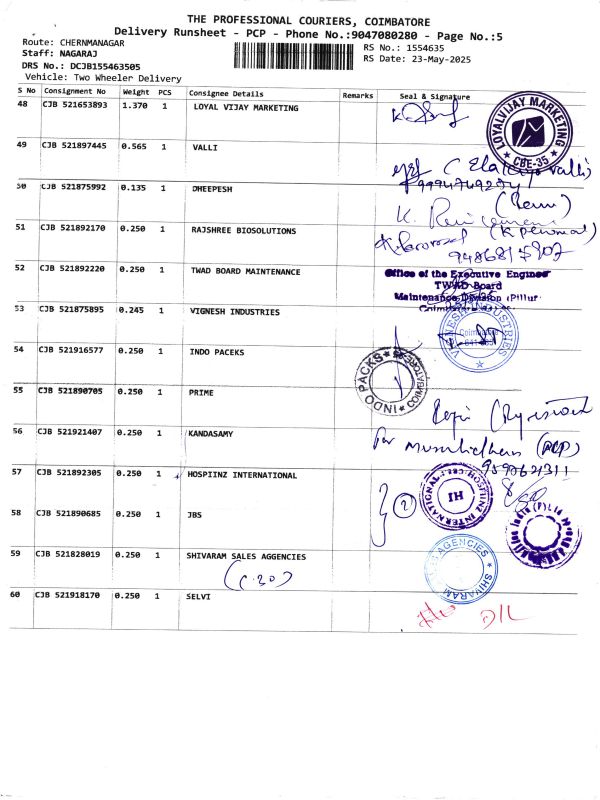 THE PROFESSIONAL COURIERS, COIMBATORE
Delivery Runsheet - PCP - Phone No.:9047080280 - Page No.:5
Route: CHERNMANAGAR
RS No.: 1554635
Staff: NAGARAJ
RS Date: 23-May-2025
DRS No.: DCJB155463505
Vehicle: Two Wheeler Delivery
S No Consignment No Weight PCS Consignee Details Remarks Seal & Signature
48 CJB 521653893 1.370 1 LOYAL VIJAY MARKETING
LOYALVIJAY MARKETING
* CBE-35 *
49 CJB 521897445 0.565 1 VALLI
50 CJB 521875992 0.135 1 DHEEPESH
51 CJB 521892170 0.250 1 RAJSHREE BIOSOLUTIONS
52 CJB 521892220 0.250 1 TWAD BOARD MAINTENANCE
Office of the Executive Engineer
TWAD Board
Maintenance Division (Pillur
53 CJB 521875895 0.245 1 VIGNESH INDUSTRIES
VIGNESH INDUSTRIES
54 CJB 521916577 0.250 1 INDO PACEKS
INDO PACKS * COIMBATORE
55 CJB 521890705 0.250 1 PRIME
56 CJB 521921407 0.250 1 KANDASAMY
57 CJB 521892305 0.250 1 HOSPIINZ INTERNATIONAL
HOSPIINZ INTERNATIONAL
IH
58 CJB 521890685 0.250 1 JBS
(2)
59 CJB 521828019 0.250 1 SHIVARAM SALES AGGENCIES
SHIVARAM
AGENCIES
60 CJB 521918170 0.250 1 SELVI
D/L